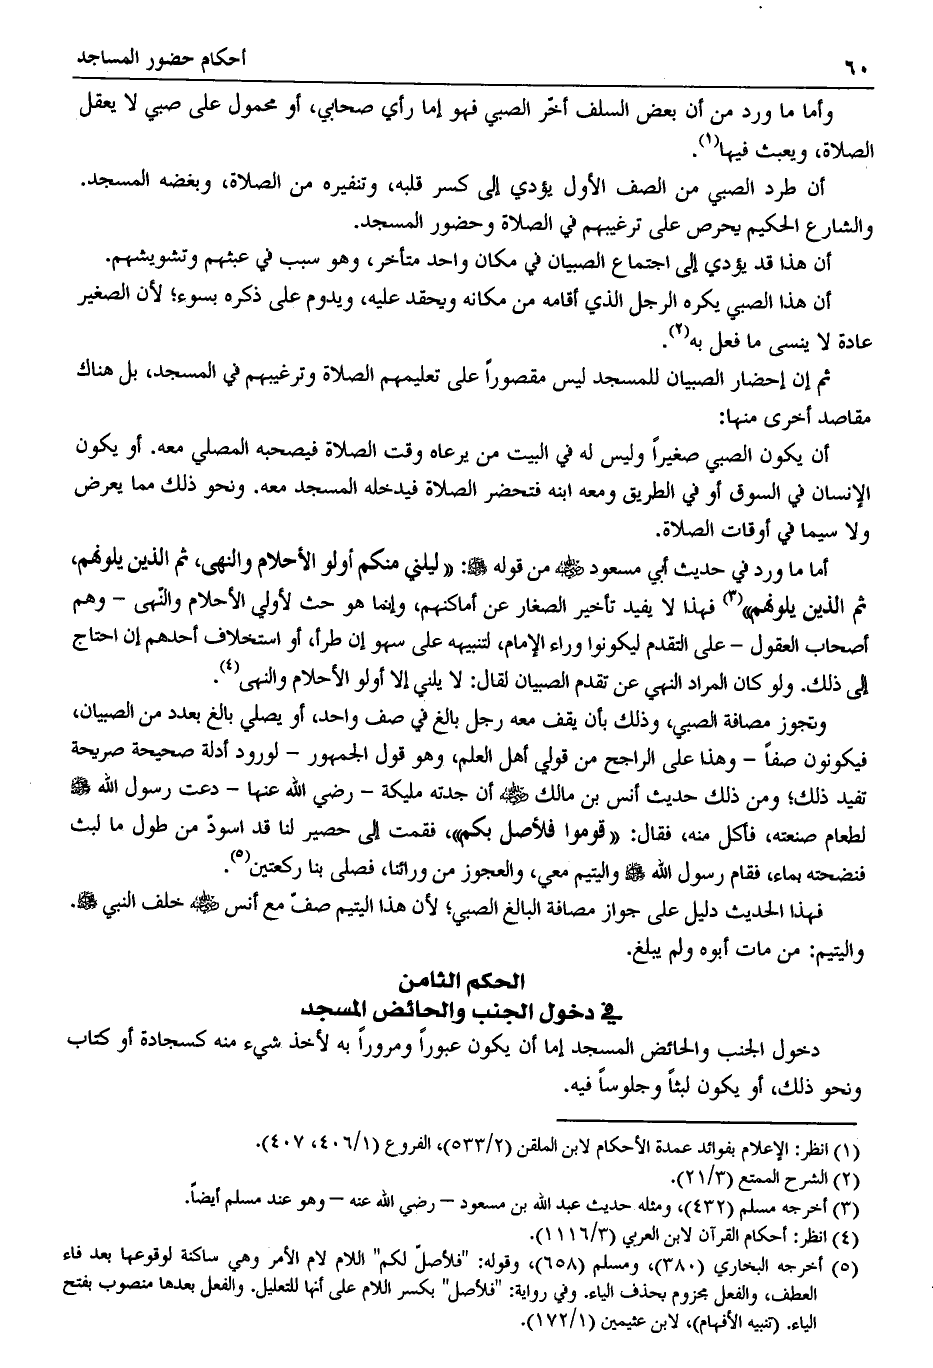 ٦٠
أحكام حضور المساجد
وأما ما ورد من أن بعض السلف أخّر الصبي فهو إما رأي صحابي، أو محمول على صبي لا يعقل
الصلاة، ويعبث فيها(١).
أن طرد الصبي من الصف الأول يؤدي إلى كسر قلبه، وتنفيره من الصلاة، وبغضه المسجد.
والشارع الحكيم يحرص على ترغيبهم في الصلاة وحضور المسجد.
أن هذا قد يؤدي إلى اجتماع الصبيان في مكان واحد متأخر، وهو سبب في عبثهم وتشويشهم.
أن هذا الصبي يكره الرجل الذي أقامه من مكانه ويحقد عليه، ويدوم على ذكره بسوء؛ لأن الصغير
عادة لا ينسى ما فعل به(٢).
ثم إن إحضار الصبيان للمسجد ليس مقصوراً على تعليمهم الصلاة وترغيبهم في المسجد، بل هناك
مقاصد أخرى منها:
أن يكون الصبي صغيراً وليس له في البيت من يرعاه وقت الصلاة فيصحبه المصلي معه. أو يكون
الإنسان في السوق أو في الطريق ومعه ابنه فتحضر الصلاة فيدخله المسجد معه. ونحو ذلك مما يعرض
ولا سيما في أوقات الصلاة.
أما ما ورد في حديث أبي مسعود ﵁ من قوله ﷺ: «ليلني منكم أولو الأحلام والنهى، ثم الذين يلونهم،
ثم الذين يلونهم»(٣) فهذا لا يفيد تأخير الصغار عن أماكنهم، وإنما هو حث لأولي الأحلام والنّهى – وهم
أصحاب العقول – على التقدم ليكونوا وراء الإمام، لتنبيهه على سهو إن طرأ، أو استخلاف أحدهم إن احتاج
إلى ذلك. ولو كان المراد النهي عن تقدم الصبيان لقال: لا يلني إلا أولو الأحلام والنهى(٤).
وتجوز مصافة الصبي، وذلك بأن يقف معه رجل بالغ في صف واحد، أو يصلي بالغ بعدد من الصبيان،
فيكونون صفاً – وهذا على الراجح من قولي أهل العلم، وهو قول الجمهور – لورود أدلة صحيحة صريحة
تفيد ذلك؛ ومن ذلك حديث أنس بن مالك ﵁ أن جدته مليكة – رضي الله عنها – دعت رسول الله ﷺ
لطعام صنعته، فأكل منه، فقال: «قوموا فلأصل بكم»، فقمت إلى حصير لنا قد اسودّ من طول ما لبث
فنضحته بماء، فقام رسول الله ﷺ واليتيم معي، والعجوز من ورائنا، فصلى بنا ركعتين(٥).
فهذا الحديث دليل على جواز مصافة البالغ الصبي؛ لأن هذا اليتيم صفّ مع أنس ﵁ خلف النبي ﷺ.
واليتيم: من مات أبوه ولم يبلغ.
الحكم الثامن
في دخول الجنب والحائض المسجد
دخول الجنب والحائض المسجد إما أن يكون عبوراً ومروراً به لأخذ شيء منه كسجادة أو كتاب
ونحو ذلك، أو يكون لبثاً وجلوساً فيه.
(١) انظر: الإعلام بفوائد عمدة الأحكام لابن الملقن (٥٣٣/٢)، الفروع (٤٠٦/١، ٤٠٧).
(٢) الشرح الممتع (٢١/٣).
(٣) أخرجه مسلم (٤٣٢)، ومثله حديث عبد الله بن مسعود – رضي الله عنه – وهو عند مسلم أيضاً.
(٤) انظر: أحكام القرآن لابن العربي (١١١٦/٣).
(٥) أخرجه البخاري (٣٨٠)، ومسلم (٦٥٨)، وقوله: "فلأصلّ لكم" اللام لام الأمر وهي ساكنة لوقوعها بعد فاء
العطف، والفعل مجزوم بحذف الياء. وفي رواية: "فلأصل" بكسر اللام على أنها للتعليل. والفعل بعدها منصوب بفتح
الياء. (تنبيه الأفهام)، لابن عثيمين (١٧٢/١).